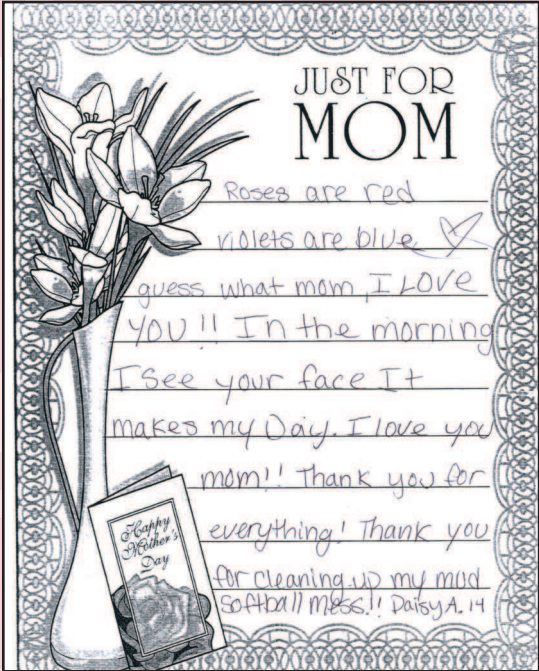 JUST FOR
MOM
Roses are red
violets are blue
guess what mom, I LOVE
YOU!! In the morning
I See your face It
makes my Day. I love you
mom!! Thank you for
everything! Thank you
for cleaning up my mud
Softball mess!! Daisy A. 14
Happy
Mother's
Day